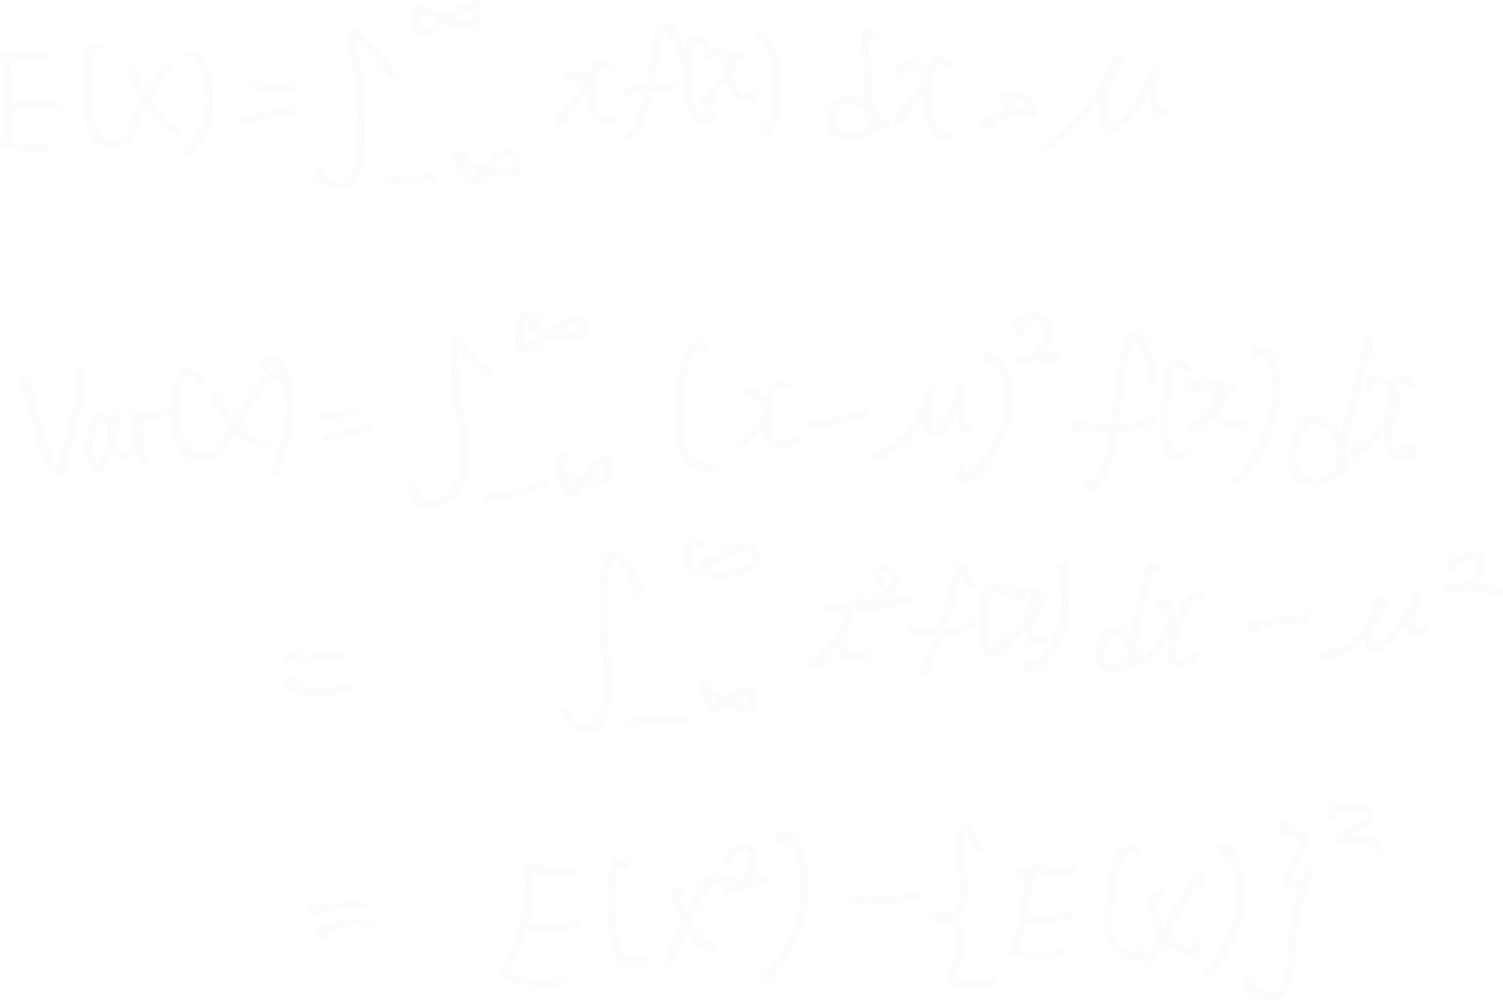 E(X) = ∫_{-∞}^{∞} x f(x) dx = μ
Var(X) = ∫_{-∞}^{∞} (x - μ)² f(x) dx
= ∫_{-∞}^{∞} x² f(x) dx - μ²
= E(X²) - {E(X)}²